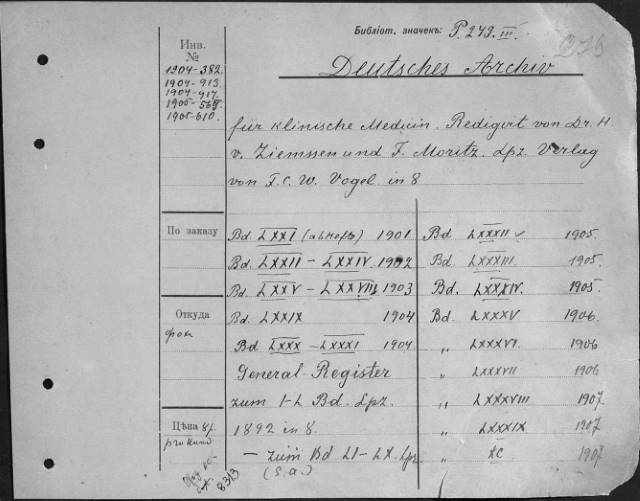 Библіот. значекъ: P. 249. III.
Инв.
№
1904-382.
1904-913.
1904-917.
1905-569.
1905-610.
Deutsches Archiv
für klinische Medicin. Redigirt von Dr. H.
v. Ziemssen und F. Moritz. Lpz. Verlag
von F. C. W. Vogel in 8
По заказу
Bd LXXI (4 Hefte) 1901
Bd. LXXII - LXXIV. 1902
Bd. LXXV - LXXVIII 1903
Откуда
фон
Bd. LXXIX 1904
Bd LXXX - LXXXI 1904
General-Register
zum I-L Bd. Lpz.
Цѣна
1892 in 8.
- zum Bd LI-LX. Lpz
(S. a.)
8313
Bd LXXXII 1905.
Bd. LXXXIII. 1905.
Bd. LXXXIV. 1905
Bd. LXXXV. 1906.
„ LXXXVI. 1906
„ LXXXVII 1906
„ LXXXVIII 1907.
„ LXXXIX 1907
„ XC 1907